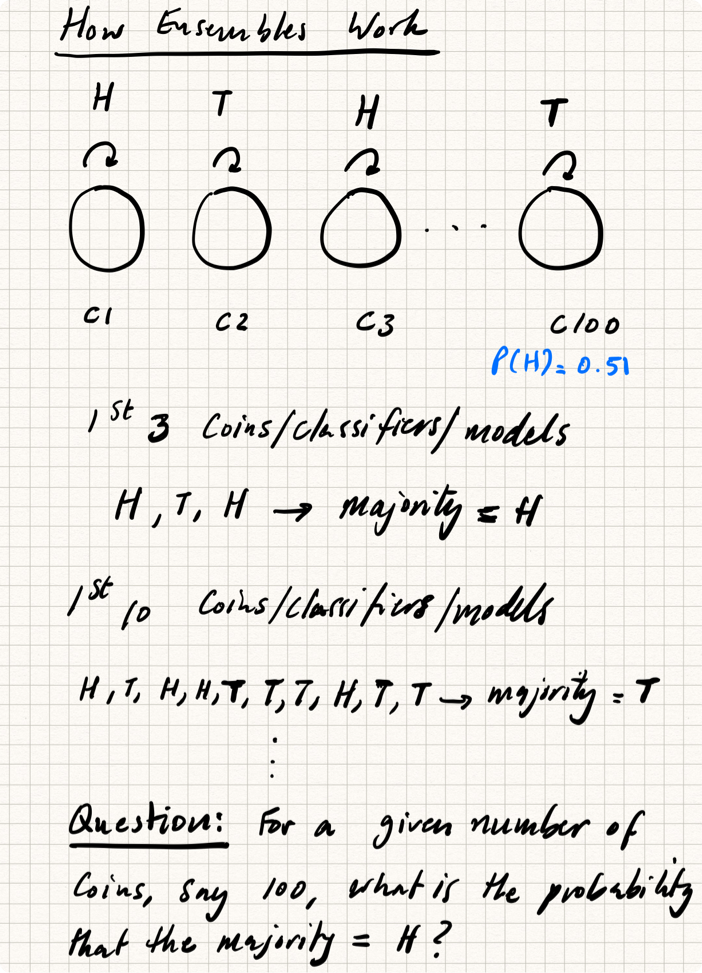 How Ensembles Work
H T H T
C1 C2 C3 ... C100
P(H)= 0.51
1st 3 Coins/classifiers/models
H, T, H → majority = H
1st 10 Coins/classifiers/models
H, T, H, H, T, T, T, H, T, T → majority = T
Question: For a given number of
Coins, say 100, what is the probability
that the majority = H?